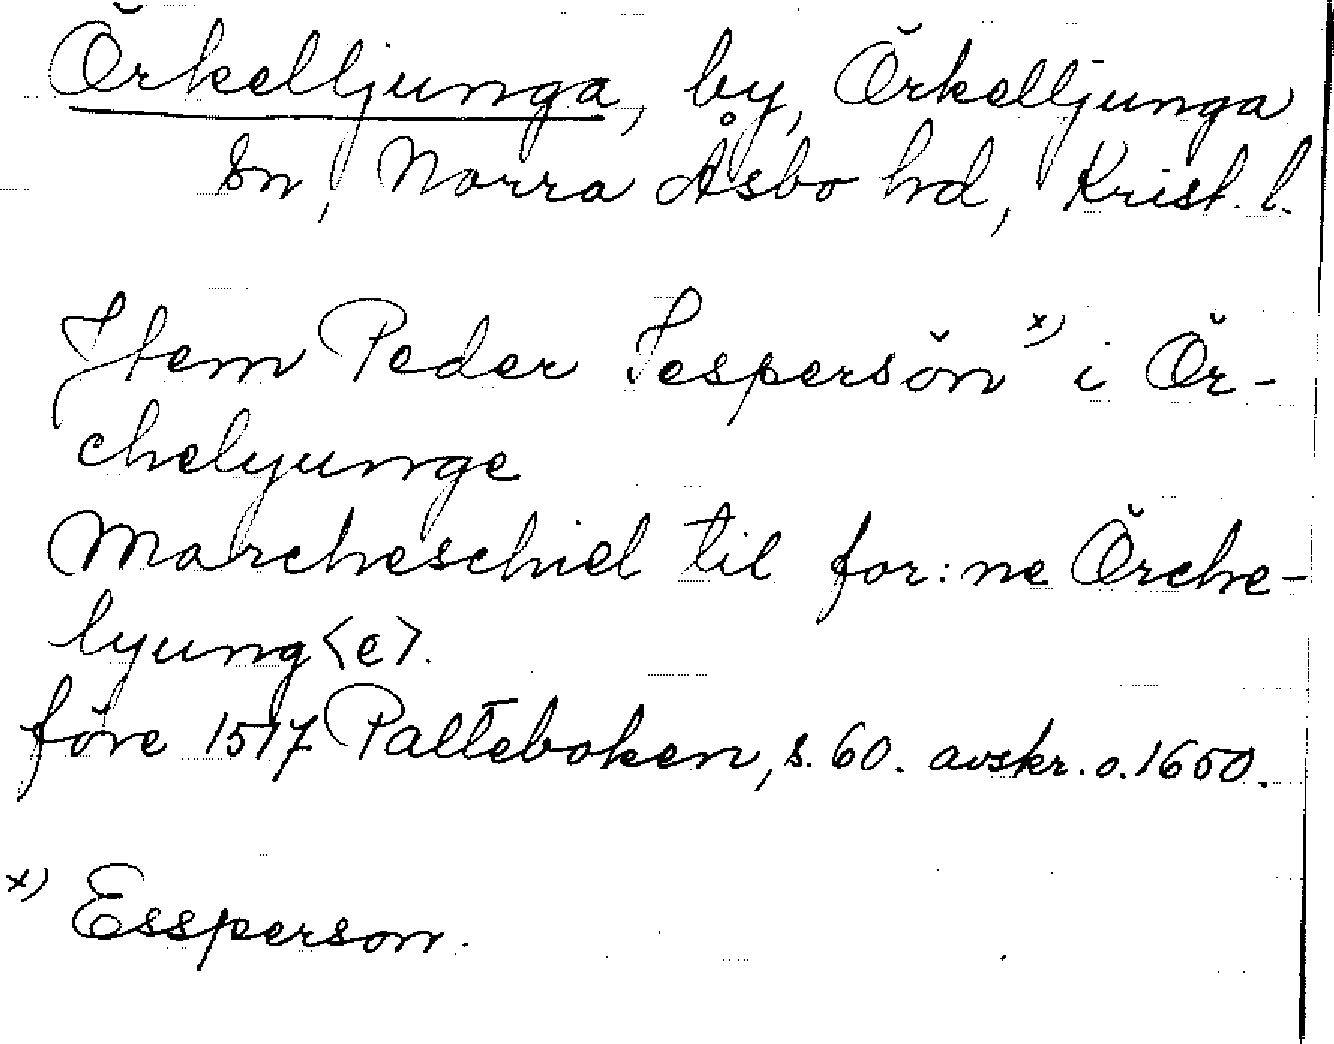 Örkelljunga, by, Örkelljunga
sn, Norra Åsbo hd, Krist. l.
Jtem Peder Jespersön x) i Ör-
chelyunge
Marcheschiel til for:ne Örche-
lyung<e>.
före 1517 Palteboken, s. 60. avskr. o. 1650.
x) Essperson.